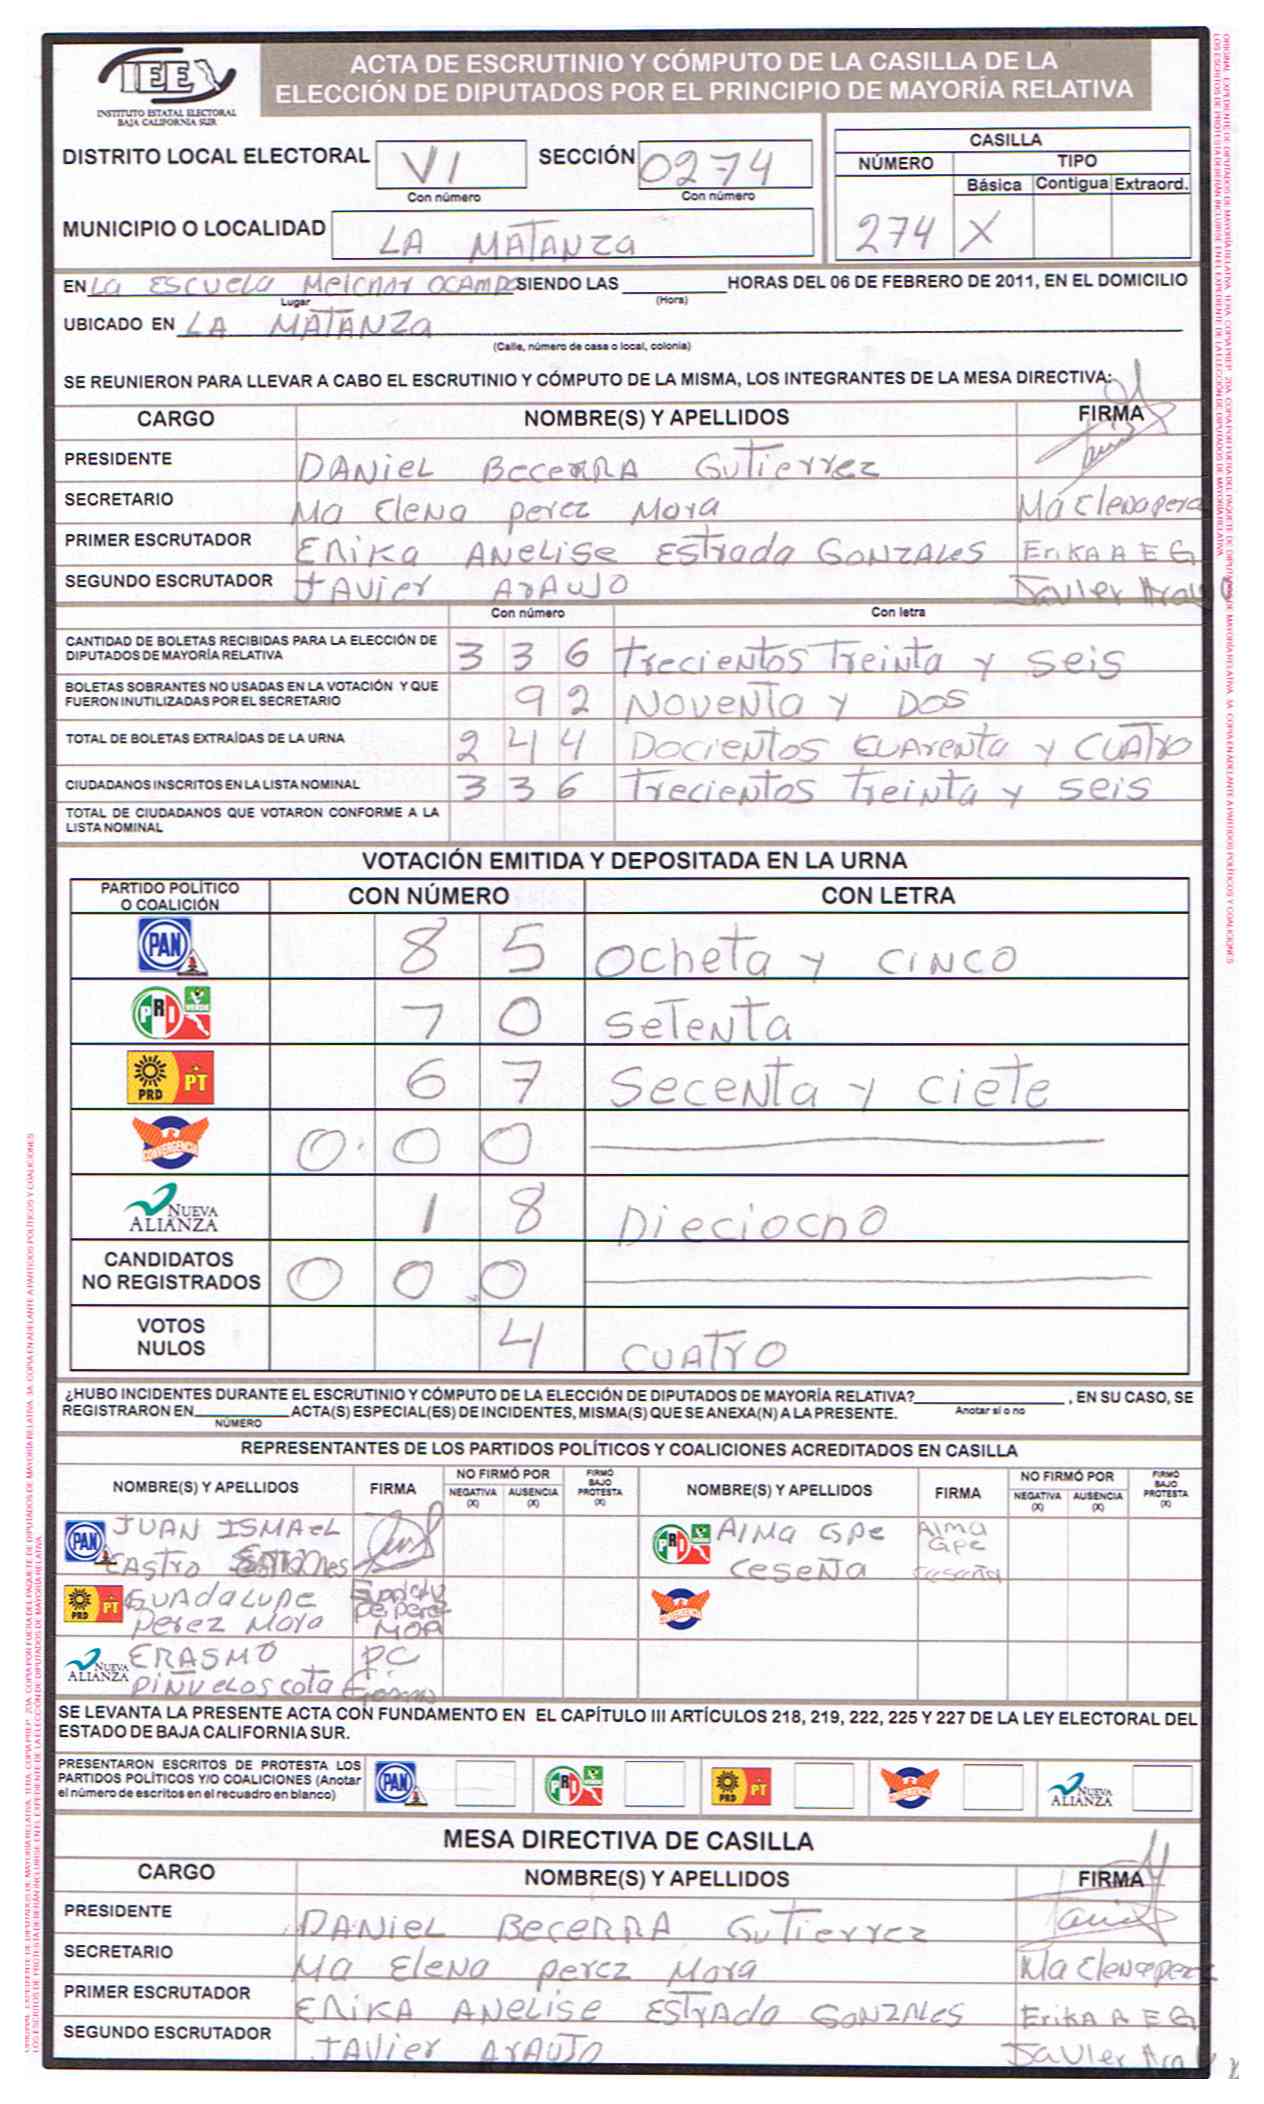 IEEX
INSTITUTO ESTATAL ELECTORAL
BAJA CALIFORNIA SUR
ACTA DE ESCRUTINIO Y CÓMPUTO DE LA CASILLA DE LA
ELECCIÓN DE DIPUTADOS POR EL PRINCIPIO DE MAYORÍA RELATIVA
DISTRITO LOCAL ELECTORAL VI SECCIÓN 0274
Con número Con número
MUNICIPIO O LOCALIDAD LA MATANZa
CASILLA
NÚMERO TIPO
Básica Contigua Extraord.
274 X
EN La EScUELa Melchar OCAMPO SIENDO LAS HORAS DEL 06 DE FEBRERO DE 2011, EN EL DOMICILIO
Lugar (Hora)
UBICADO EN LA MATANZa
(Calle, número de casa o local, colonia)
SE REUNIERON PARA LLEVAR A CABO EL ESCRUTINIO Y CÓMPUTO DE LA MISMA, LOS INTEGRANTES DE LA MESA DIRECTIVA:
CARGO NOMBRE(S) Y APELLIDOS FIRMA
PRESIDENTE DANiEL BecerrA Gutierrez
SECRETARIO Ma ElENa perez Mora Ma Elena pere
PRIMER ESCRUTADOR ERiKa ANELiSe EStrada GONZALES EriKA A E G
SEGUNDO ESCRUTADOR JAVier ArAUJO Javier Arau
Con número Con letra
CANTIDAD DE BOLETAS RECIBIDAS PARA LA ELECCIÓN DE
DIPUTADOS DE MAYORÍA RELATIVA 3 3 6 trecientos treinta y seis
BOLETAS SOBRANTES NO USADAS EN LA VOTACIÓN Y QUE
FUERON INUTILIZADAS POR EL SECRETARIO 9 2 NOVENTa y DOS
TOTAL DE BOLETAS EXTRAÍDAS DE LA URNA 2 4 4 Docientos cuarenta y CUATRO
CIUDADANOS INSCRITOS EN LA LISTA NOMINAL 3 3 6 Trecientos treinta y seis
TOTAL DE CIUDADANOS QUE VOTARON CONFORME A LA
LISTA NOMINAL
VOTACIÓN EMITIDA Y DEPOSITADA EN LA URNA
PARTIDO POLÍTICO
O COALICIÓN CON NÚMERO CON LETRA
PAN 8 5 Ocheta y CINCO
PRI VERDE 7 0 SeTenta
PRD PT 6 7 Secenta y Ciete
CONVERGENCIA 0 0 0
NUEVA
ALIANZA 1 8 Dieciocho
CANDIDATOS
NO REGISTRADOS 0 0 0
VOTOS
NULOS 4 CUATRO
¿HUBO INCIDENTES DURANTE EL ESCRUTINIO Y CÓMPUTO DE LA ELECCIÓN DE DIPUTADOS DE MAYORÍA RELATIVA? , EN SU CASO, SE
REGISTRARON EN ACTA(S) ESPECIAL(ES) DE INCIDENTES, MISMA(S) QUE SE ANEXA(N) A LA PRESENTE. Anotar sí o no
NÚMERO
REPRESENTANTES DE LOS PARTIDOS POLÍTICOS Y COALICIONES ACREDITADOS EN CASILLA
NOMBRE(S) Y APELLIDOS FIRMA NO FIRMÓ POR NEGATIVA (X) AUSENCIA (X) FIRMÓ BAJO PROTESTA (X) NOMBRE(S) Y APELLIDOS FIRMA NO FIRMÓ POR NEGATIVA (X) AUSENCIA (X) FIRMÓ BAJO PROTESTA (X)
PAN JUAN ISMAEL
CASTRO
PRI VERDE AlMa GPe Alma GPe
CeseÑa ceseña
PRD PT GUADALUPE
Perez Mora
CONVERGENCIA
NUEVA ALIANZA ERASMO PC
PiÑUELOS cota
SE LEVANTA LA PRESENTE ACTA CON FUNDAMENTO EN EL CAPÍTULO III ARTÍCULOS 218, 219, 222, 225 Y 227 DE LA LEY ELECTORAL DEL
ESTADO DE BAJA CALIFORNIA SUR.
PRESENTARON ESCRITOS DE PROTESTA LOS
PARTIDOS POLÍTICOS Y/O COALICIONES (Anotar
el número de escritos en el recuadro en blanco)
PAN PRI VERDE PRD PT CONVERGENCIA NUEVA ALIANZA
MESA DIRECTIVA DE CASILLA
CARGO NOMBRE(S) Y APELLIDOS FIRMA
PRESIDENTE DANiEL BecerrA Gutierrez
SECRETARIO Ma Elena perez Mora Ma Elena pere
PRIMER ESCRUTADOR ERiKA ANELiSe EStrada GONZALES EriKA A E G
SEGUNDO ESCRUTADOR JAVier ArAUJO Javier Arau